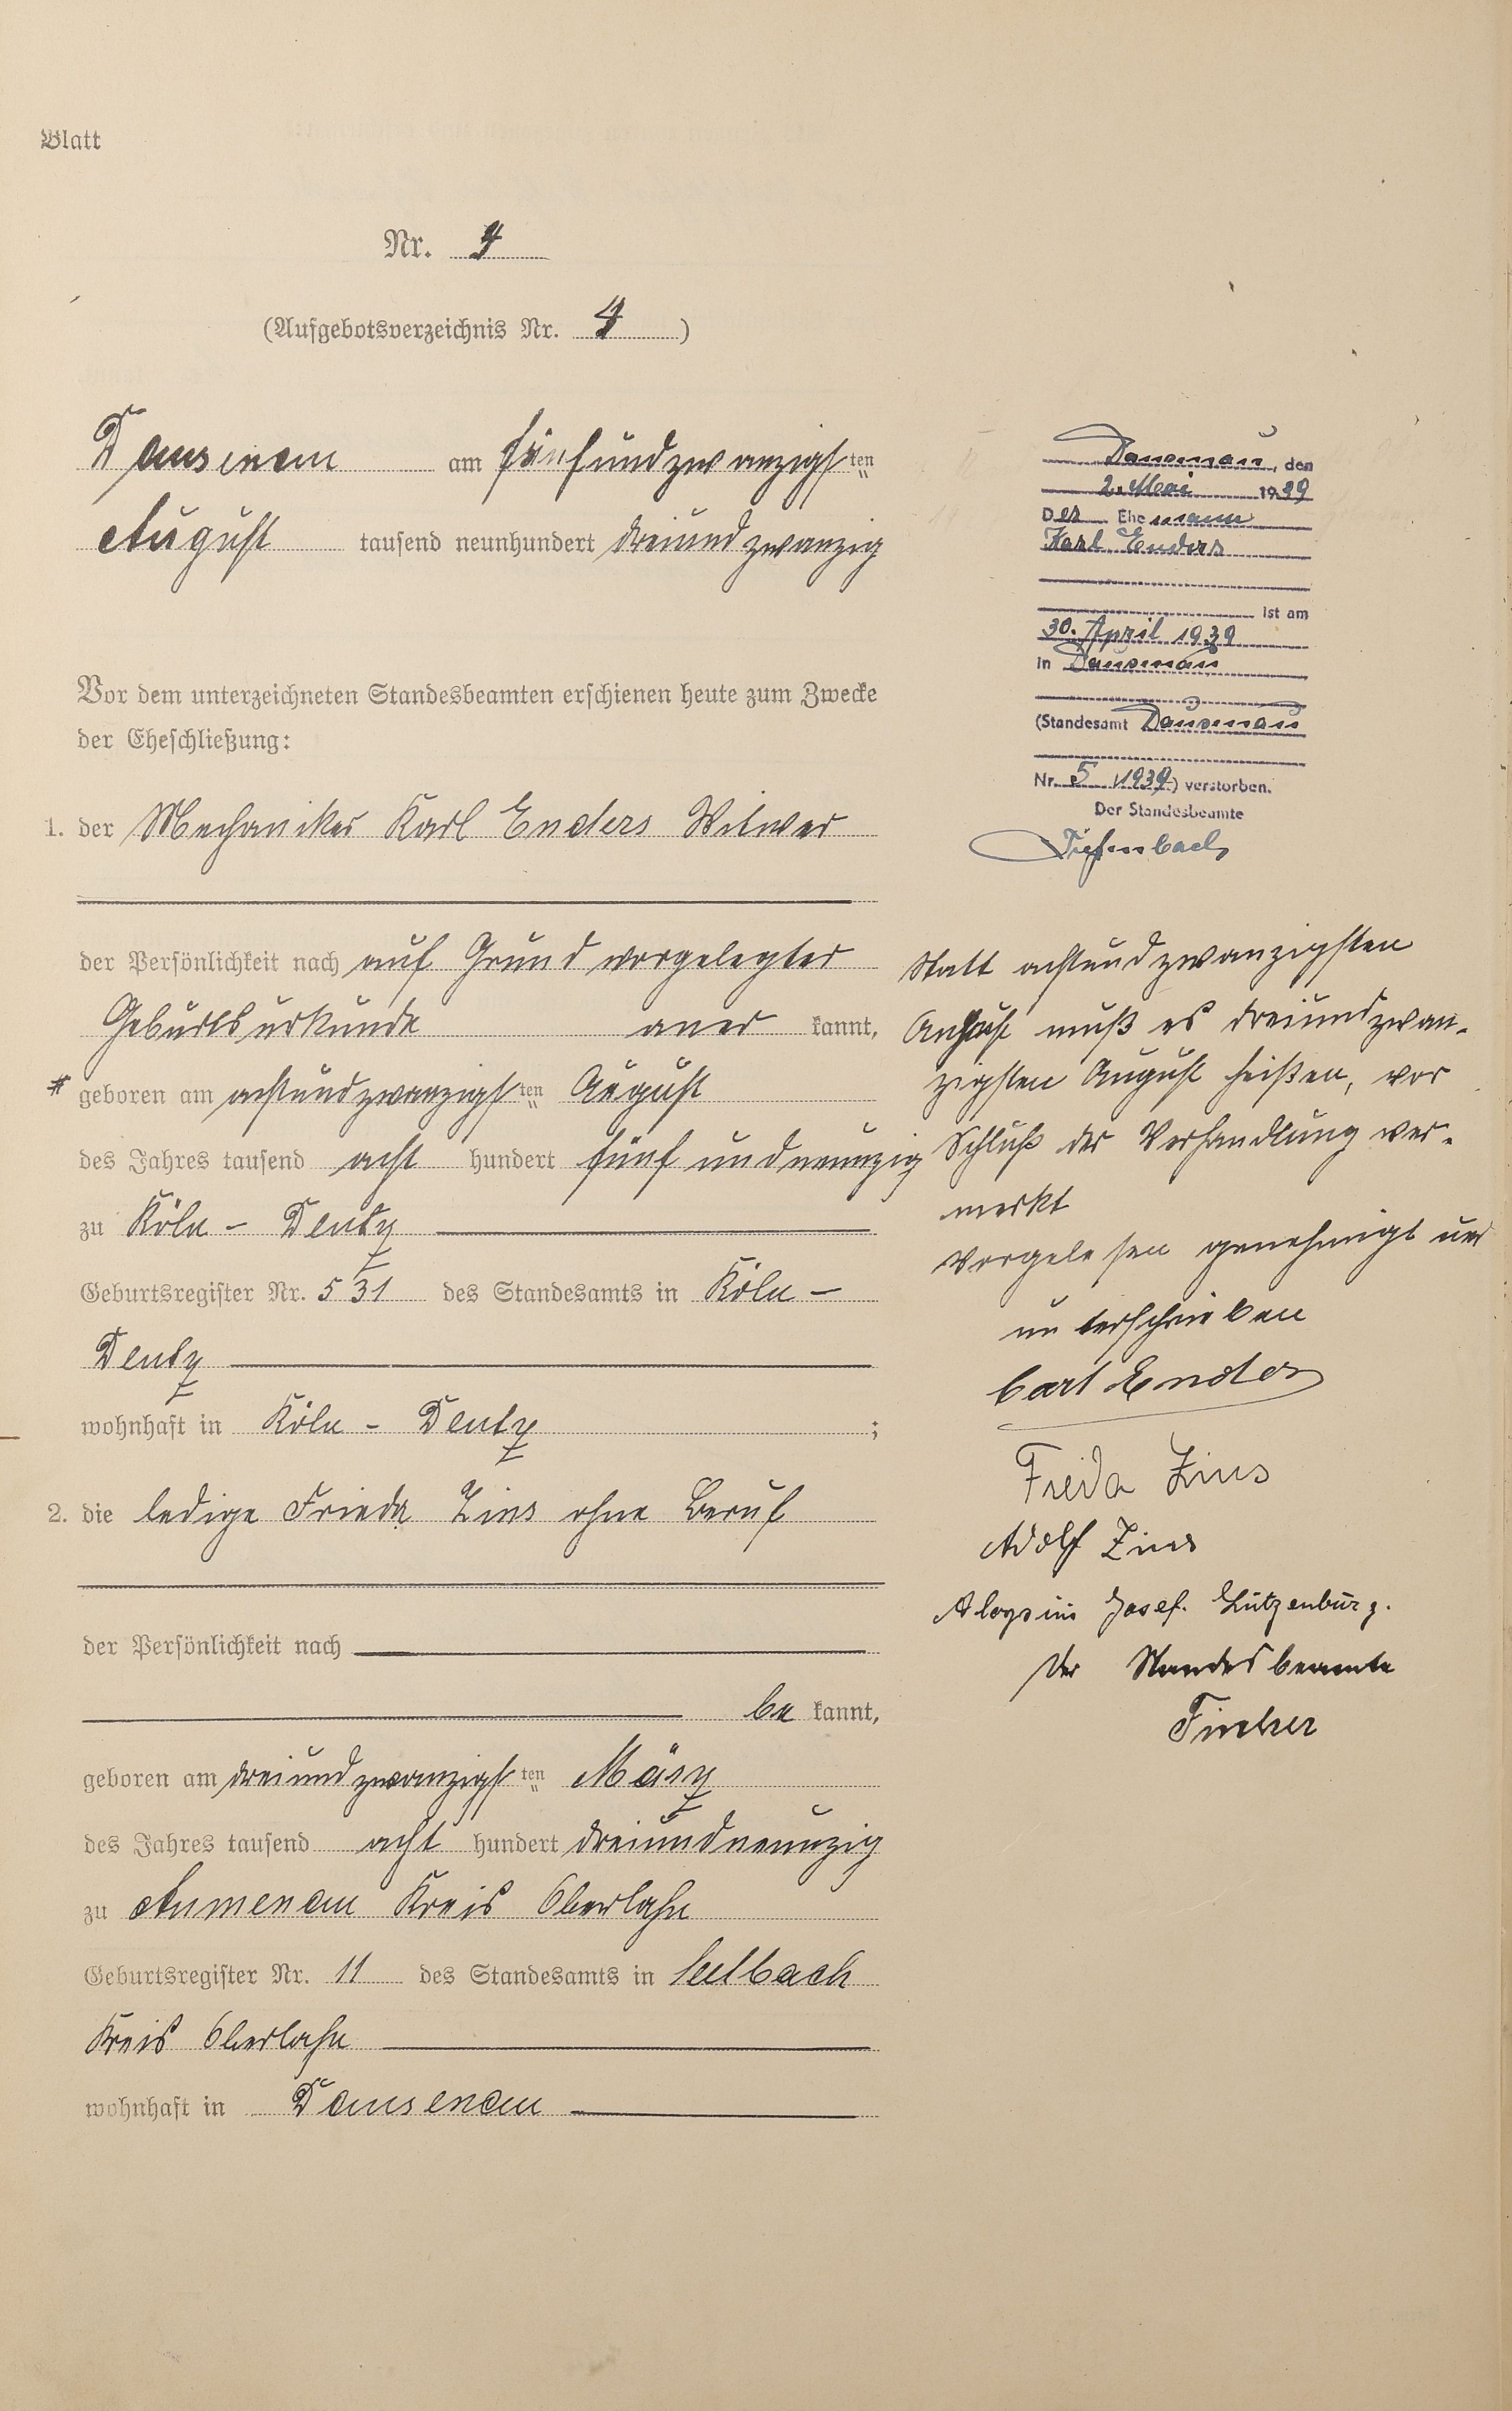 Blatt
Nr. 4
(Aufgebotsverzeichnis Nr. 4)
Dausenau am fünfundzwanzigsten
August tausend neunhundert dreiundzwanzig
Vor dem unterzeichneten Standesbeamten erschienen heute zum Zwecke
der Eheschließung:
1. der Mechaniker Karl Enders Witwer
der Persönlichkeit nach auf Grund vorgelegter
Geburtsurkunde aner kannt,
* geboren am achtundzwanzigsten August
des Jahres tausend acht hundert fünf undneunzig
zu Köln - Deutz
Geburtsregister Nr. 531 des Standesamts in Köln -
Deutz
wohnhaft in Köln - Deutz ;
2. die ledige Frieda Zins ohne Beruf
der Persönlichkeit nach
be kannt,
geboren am dreiundzwanzigsten März
des Jahres tausend acht hundert dreiundneunzig
zu Aumenau Kreis Oberlahn
Geburtsregister Nr. 11 des Standesamts in Seelbach
Kreis Oberlahn
wohnhaft in Dausenau
Dausenau, den
2. Mai 1939
Der Ehemann
Karl Enders
ist am
30. April 1939
in Dausenau
(Standesamt Dausenau
Nr. 5 /1939) verstorben.
Der Standesbeamte
Tiefenbach
Statt achtundzwanzigsten
August muß es dreiundzwan-
zigsten August heißen, vor
Schluß der Verhandlung ver-
merkt
Vorgelesen genehmigt und
unterschrieben
Carl Enders
Frieda Zins
Adolf Zins
Aloysius Josef. Lützenburg.
Der Standesbeamte